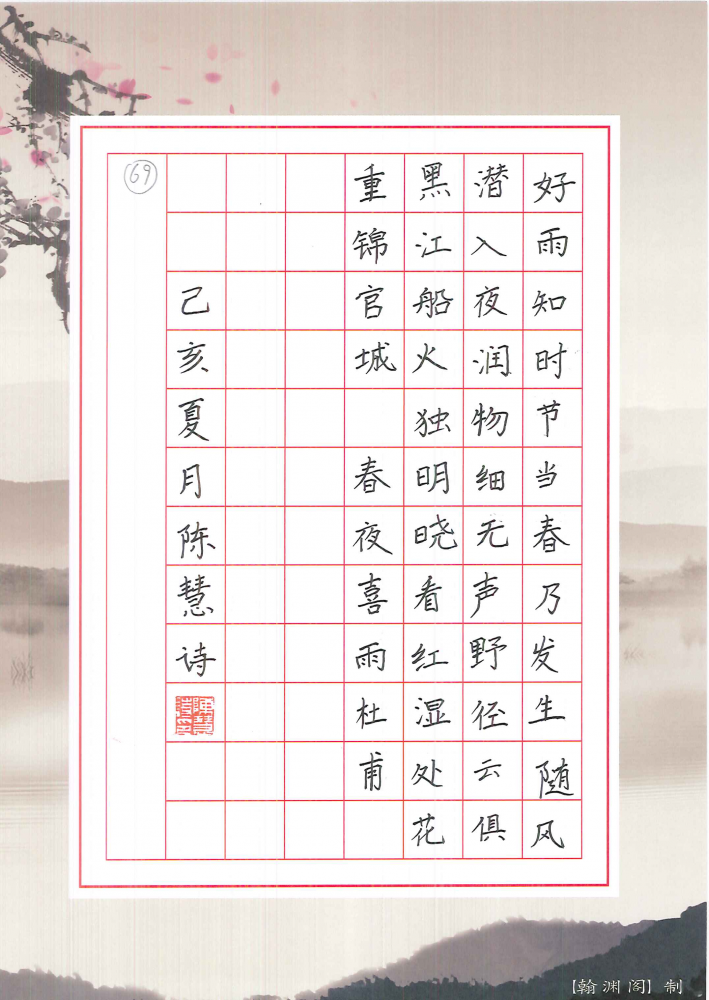 好雨知时节当春乃发生随风
潜入夜润物细无声野径云俱
黑江船火独明晓看红湿处花
重锦官城 春夜喜雨杜甫
己亥夏月陈慧诗
69
【翰渊阁】制